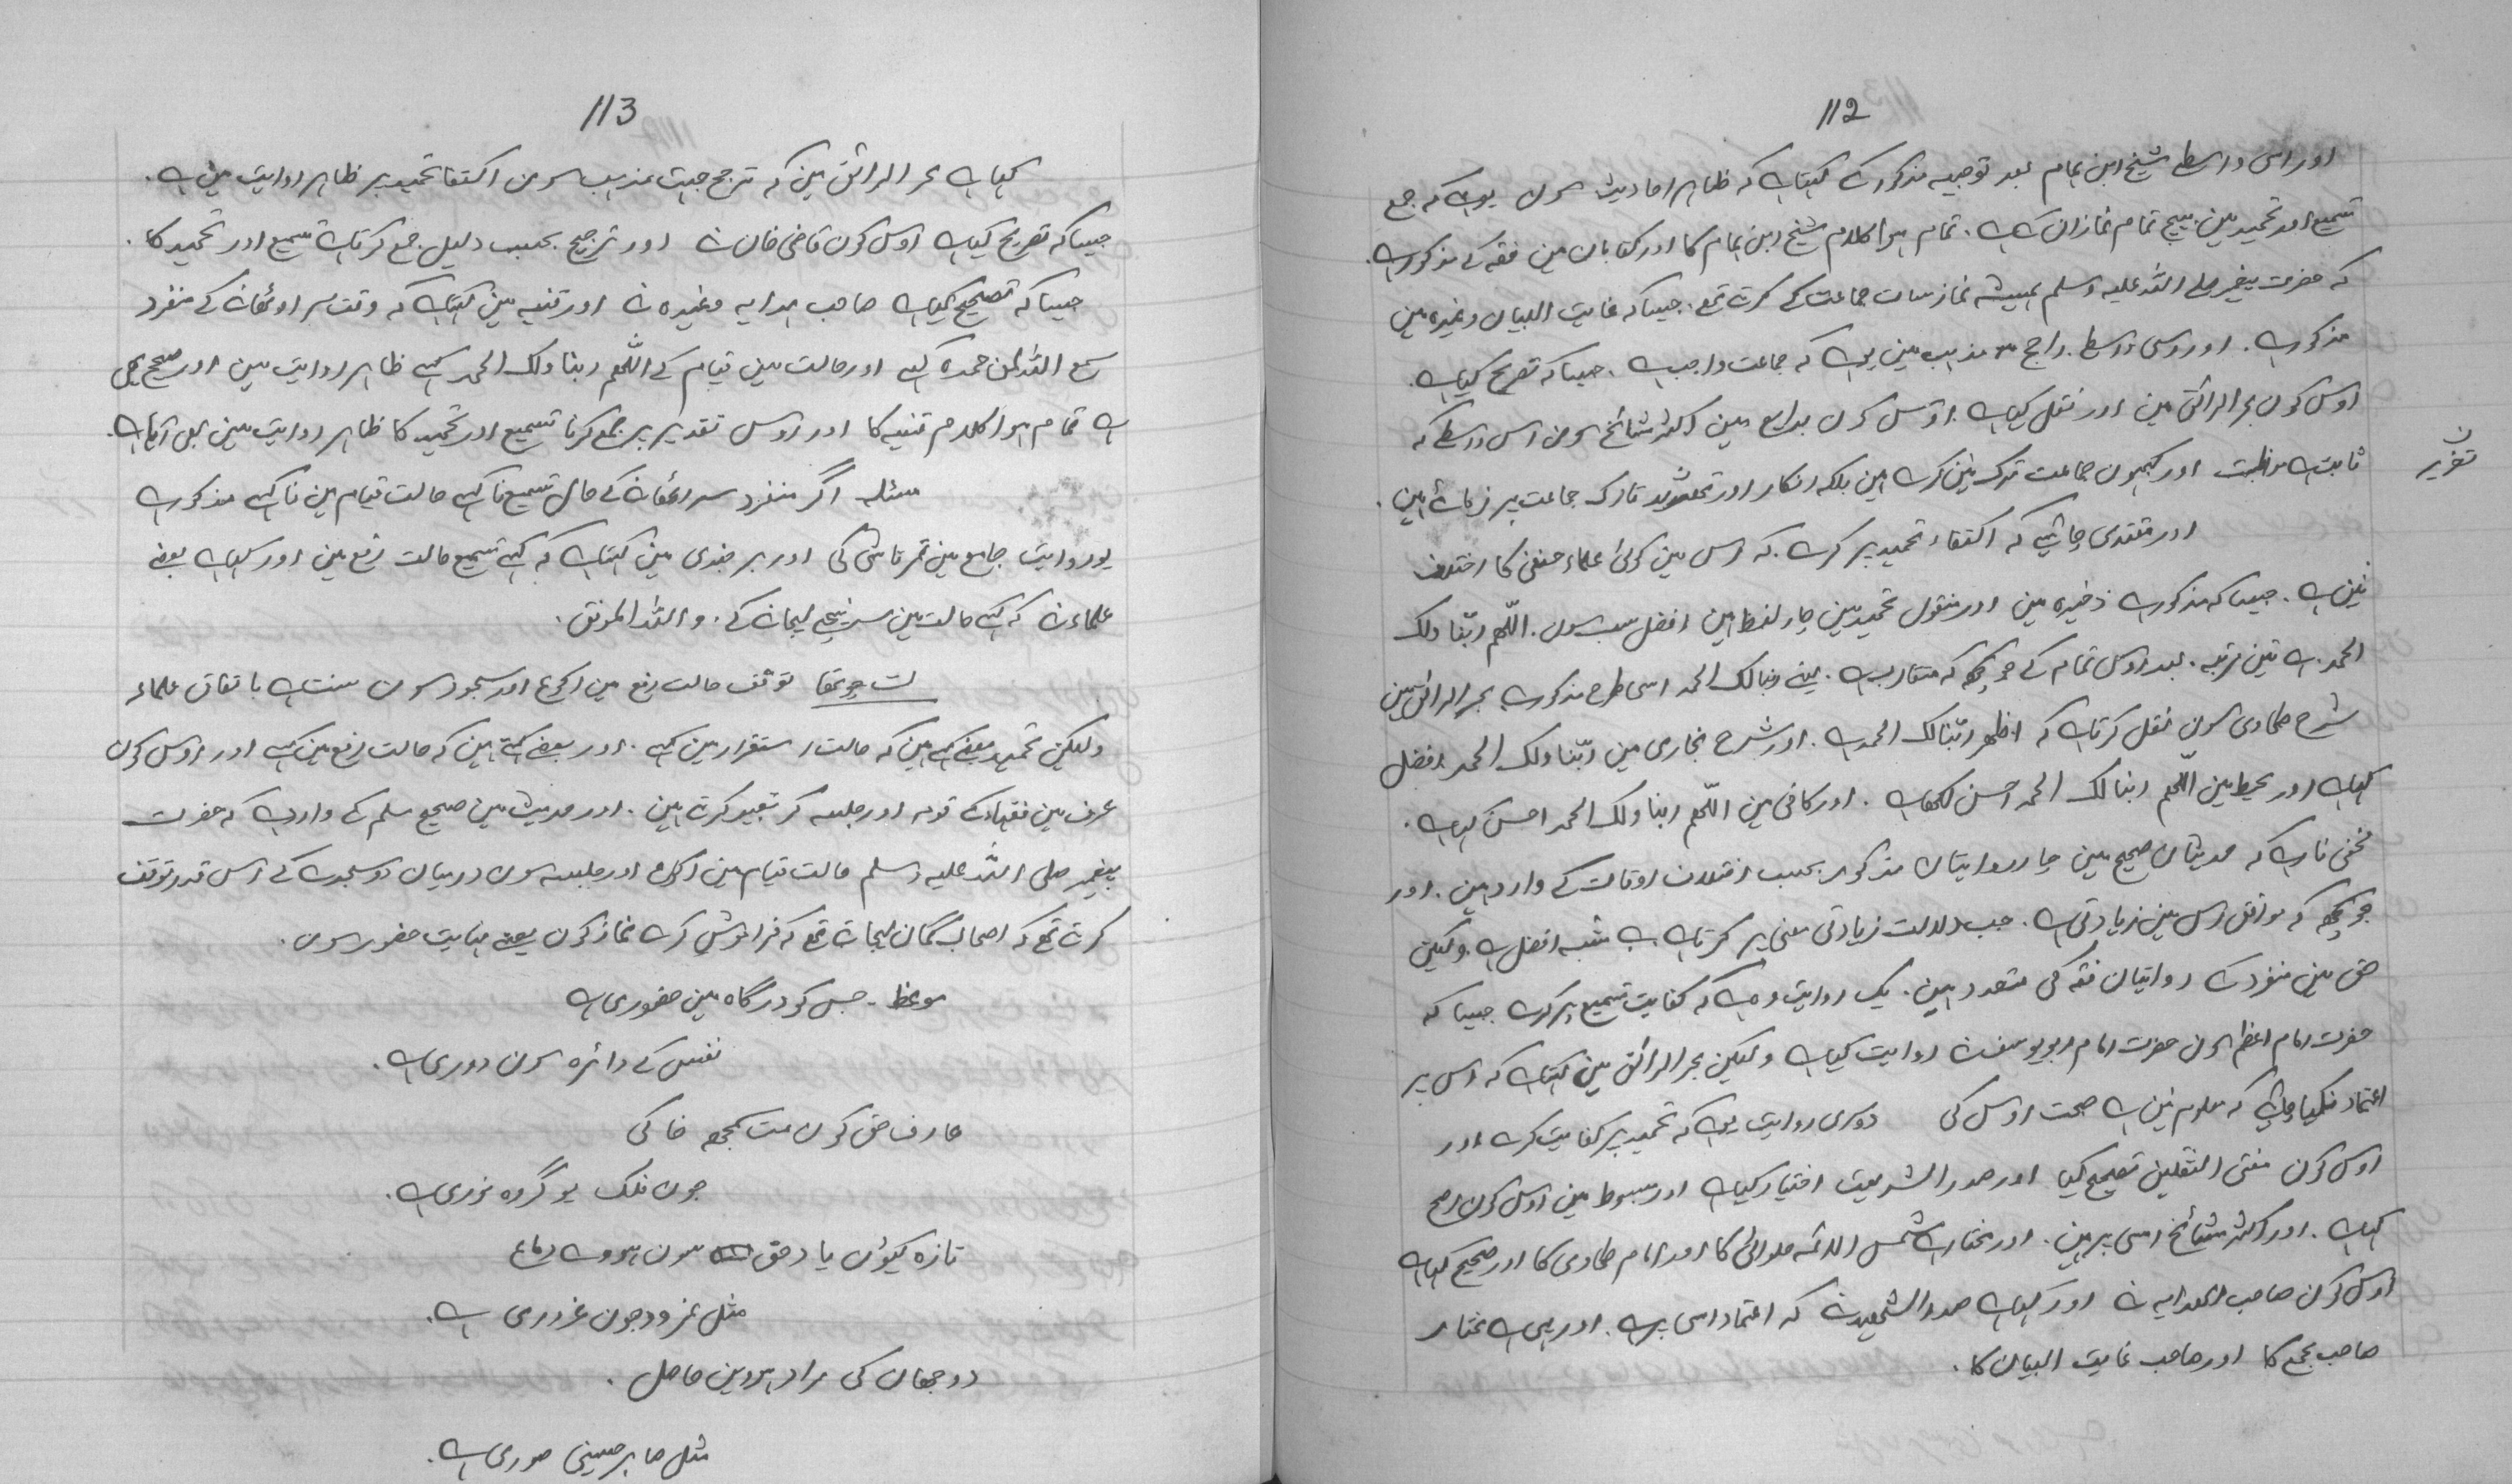 112
اور اسی واسطے شیخ ابن ہمام بعد توجیہ مذکور کے کہتا ہے کہ ظاہر احادیث سوں یو ہے کہ جمع
تسمیع اور تحمید مین بیچ تمام نمازاں کے ہے . تمام ہوا کلام شیخ ابن ہمام کا اور کتاباں مین فقہ کے مذکور ہے .
کہ حضرت پیغمبر صلی اللہ علیہ وسلم ہمیشہ نماز سات جماعت کے کرتے تھے . جیسا کہ غایت البیان وغیرہ مین
مذکور ہے . اور اوسی واسطے راجح مذہب مین یو ہے کہ جماعت واجب ہے . جیسا کہ تصریح کیا ہے .
اوس کوں بحر الرائق مین اور نقل کیا ہے اوس کوں بدایع مین اکثر مشائخ سوں اس واسطے کہ
ثابت ہے مواظبت اور کبھوں جماعت ترک نیں کرے ہیں بلکہ انکار اور تشدید تارک جماعت پر فرمائے ہیں .
اور مقتدی چاہئیے کہ اکتفاء تحمید پر کرے . کہ اس مین کوئی علماء حنفی کا اختلاف
نیں ہے . جیسا کہ مذکور ہے ذخیرہ مین اور منقول تحمید مین چار لفظ ہیں افضل سب سوں . اللّٰہم ربّنا ولک
الحمد . ہے تین مرتبہ . بعد اوس تمام کے جو کچھ کہ متقارب ہے . یعنے ربنا لک الحمد اسی طرح مذکور ہے بحر الرائق مین
شرح طحاوی سوں نقل کرتا ہے کہ اظہر ربّنا لک الحمد ہے . اور شرح بخاری مین ربّنا ولک الحمد افضل
کہا ہے اور محیط مین اللّٰہم ربنا لک الحمد احسن لکھا ہے . اور کافی مین اللّٰہم ربنا ولک الحمد احسن کہا ہے .
مخفی نا رہے کہ حدیثاں صحیح مین چار روایتاں مذکور بحسب اختلاف اوقات کے وارد ہیں . اور
جو کچھ کہ موافق اس مین زیادتی ہے . جب دلالت زیادتی معنی پر کرتا ہے بے شبہ افضل ہے . ولیکن
حق مین منفرد کے روایتاں فقہ کی متعدد ہیں . یک روایت وہ ہے کہ کفایت تسمیع پر کرے جیسا کہ
حضرت امام اعظم سوں حضرت امام ابو یوسف نے روایت کیا ہے ولیکن بحر الرائق مین کہتا ہے کہ اس پر
اعتماد نکیا چاہئے کہ معلوم نیں ہے صحت اوس کی دوسری روایت یو ہے کہ تحمید پر کفایت کرے اور
اوس کوں مفتی الثقلین تصحیح کیا اور صدر الشریعت اختیار کیا ہے اور مبسوط مین اوس کوں اصح
کہا ہے . اور اکثر مشائخ اسی پر ہیں . اور مختار ہے شمس الائمہ حلوائی کا اور امام طحاوی کا اور صحیح کہا ہے
اوس کوں صاحب الہدایہ نے اور کہا ہے صدر الشہید نے کہ اعتماد اسی پر ہے . اور یہی ہے مختار
صاحب مجمع کا اور صاحب غایت البیان کا .
113
کہا ہے بحر الرائق مین کہ ترجح جہت مذہب سوں اکتفا تحمید پر ظاہر روایت مین ہے .
جیسا کہ تصریح کیا ہے اوس کوں قاضی خان نے اور ترجیح بحسب دلیل جمع کرتا ہے تسمیع اور تحمید کا .
جیسا کہ تصحیح کیا ہے صاحب ہدایہ وغیرہ نے اور قنیہ مین کہتا ہے کہ وقت سر اوٹھانے کے منفرد
سمع اللہ لمن حمدہ کہے اور حالت مین قیام کے اللّٰہم ربنا ولک الحمد کہے ظاہر روایت مین اور صحیح یہی
ہے تمام ہوا کلام قنیہ کا اور اوس تقدیر پر جمع کرنا تسمیع اور تحمید کا ظاہر روایت مین بھی آیا ہے .
مسئلہ اگر منفرد سر اٹھانے کے حال تسمیع نا کہے حالت قیام مین نا کہے مذکور ہے
یو روایت جامع مین تمرتاشی کی اور برجندی مین کہتا ہے کہ کہے تسمیع حالت رفع مین اور کہا ہے بعضے
علماء نے کہ کہے حالت مین سر نیچے لیجانے کے . و اللہ الموفق .
سنت چوتھا توقف حالت رفع مین رکوع اور سجود سوں سنت ہے باتفاق علماء
ولیکن تحمید بعضے کہے ہیں کہ حالت استقرار مین کہے . اور بعضے کہتے ہیں کہ حالت رفع مین کہے اور اوس کوں
عرف مین فقہاء کے قومہ اور جلسہ کر تعبیر کرتے ہیں . اور حدیث مین صحیح مسلم کے وارد ہے کہ حضرت
پیغمبر صلی اللہ علیہ وسلم حالت قیام مین رکوع اور جلسہ سوں درمیان دو سجدے کے اس قدر توقف
کرتے تھے کہ اصحاب گمان لیجاتے تھے کہ فراموش کرے نماز کوں یعنے نہایت حضور سوں .
موعظ - جس کو درگاہ مین حضوری ہے
نفس کے دائرہ سوں دوری ہے .
عارف حق کوں مت سمجھ خاکی
جوں فلک یو گروہ نوری ہے .
تازہ کیوں یاد حق سوں ہووے دماغ
مثل نمرود جوں غروری ہے .
دو جہاں کی مراد ہووین حاصل .
مثل صابر حسینی صوری ہے .